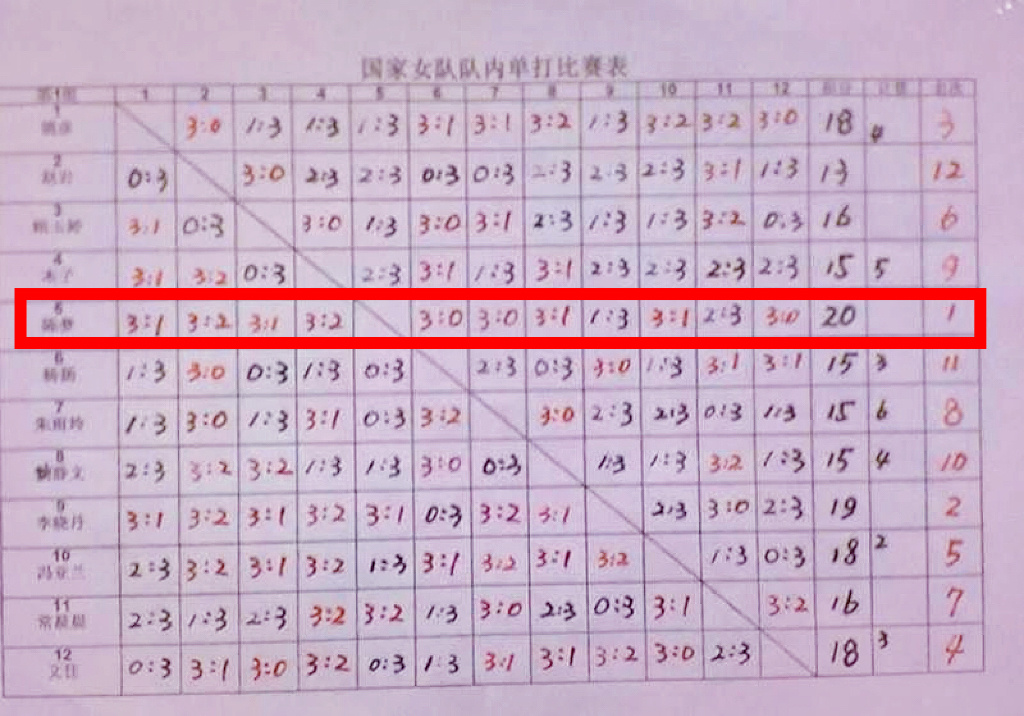 国家女队队内单打比赛表
第1组 1 2 3 4 5 6 7 8 9 10 11 12 积分 计算 名次
1 3:0 1:3 1:3 1:3 3:1 3:1 3:2 1:3 3:2 3:2 3:0 18 4 3
2 0:3 3:0 2:3 2:3 0:3 0:3 2:3 2:3 2:3 3:1 1:3 13 12
3 3:1 0:3 3:0 1:3 3:0 3:1 2:3 1:3 1:3 3:2 0:3 16 6
4 木子 3:1 3:2 0:3 2:3 3:1 1:3 3:1 2:3 2:3 2:3 2:3 15 5 9
5 陈梦 3:1 3:2 3:1 3:2 3:0 3:0 3:1 1:3 3:1 2:3 3:0 20 1
6 杨扬 1:3 3:0 0:3 1:3 0:3 2:3 0:3 3:0 1:3 3:1 3:1 15 3 11
7 朱雨玲 1:3 3:0 1:3 3:1 0:3 3:2 3:0 2:3 2:3 0:3 1:3 15 6 8
8 2:3 3:2 3:2 1:3 1:3 3:0 0:3 1:3 1:3 3:2 1:3 15 4 10
9 李晓丹 3:1 3:2 3:1 3:2 3:1 0:3 3:2 3:1 2:3 3:0 2:3 19 2
10 冯亚兰 2:3 3:2 3:1 3:2 1:3 3:1 3:2 3:1 3:2 1:3 0:3 18 2 5
11 常晨晨 2:3 1:3 2:3 3:2 3:2 1:3 3:0 2:3 0:3 3:1 3:2 16 7
12 文佳 0:3 3:1 3:0 3:2 0:3 1:3 3:1 3:1 3:2 3:0 2:3 18 3 4